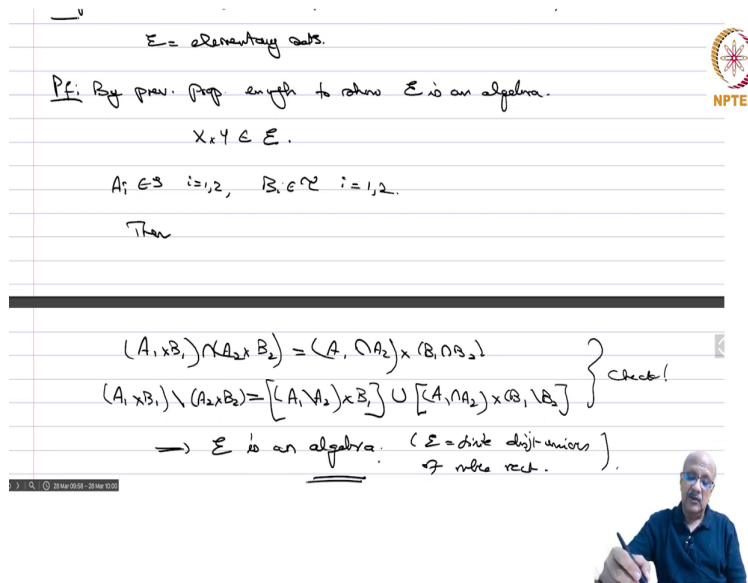 Ɛ = elementary sets.
Pf: By prev. prop. enough to show Ɛ is an algebra.
X × Y ∈ Ɛ.
Aᵢ ∈ S i=1,2, Bᵢ ∈ τ i=1,2.
Then
(A₁×B₁)∩(A₂×B₂) = (A₁∩A₂)×(B₁∩B₂)
(A₁×B₁)\(A₂×B₂) = [(A₁\A₂)×B₁] ∪ [(A₁∩A₂)×(B₁\B₂)] } Check!
⟹ Ɛ is an algebra. (Ɛ = finite disjt. unions
of mble rect.).
NPTE
28 Mar 09:58 – 28 Mar 10:00